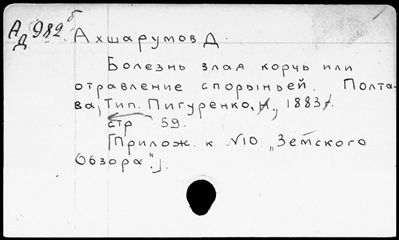 А 982 б
Д
Ахшарумов Д.
Болезнь злая корчь или
отравление спорыньей. Полта-
ва, Тип. Пигуренко, И., 1883 г.
стр 59.
[Прилож. к №10 „Земского
Обзора".].